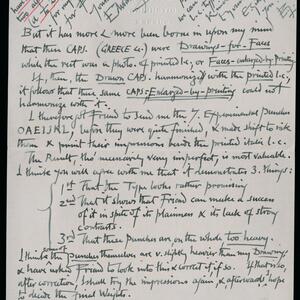 But it has more & more been borne in upon my mind
that these CAPS. (GREEK 4.) were Drawings-for-Faces
while the rest was a photo. of printed l.c., or Faces-enlarged-by-printing
If, then, the Drawn CAPS. harmonized with the printed l.c.,
it follows that these same CAPS Enlarged-by-printing could not
harmonize with it.
I therefore got Friend to send me the 7. Experimental Punches
before they were quite finished, & made shift to
them & print their impressions beside the printed italic l.c.
The Result, tho' necessarily very imperfect, is most valuable.
I think you will agree with me that it demonstrates 3. things:
1st That the Type looks rather promising
2nd That it shows that Friend can make a success
of it in spite of its plainness & its lack of strong
contrasts.
3rd That these punches are on the whole too heavy.
I think the Punches themselves are v. slightly heavier than my Drawing
& have asked Friend to look into this & correct if so.
after correction, I shall try the impressions again & afterwards hope
to decide the final Weights.